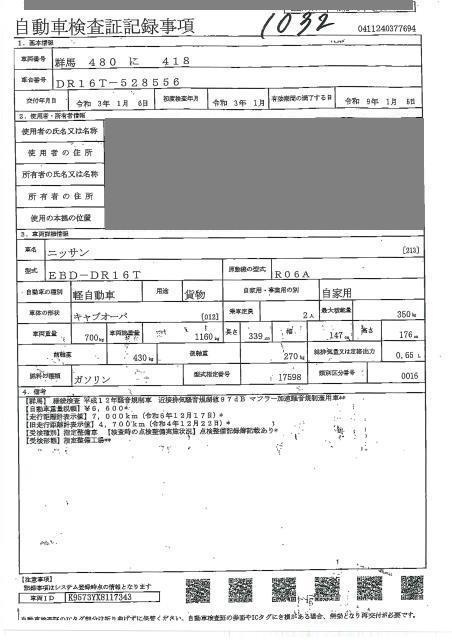 1032
自動車検査証記録事項
0411240377694
1．基本情報
車両番号 群馬 480 に 418
車台番号 DR16T-528556
交付年月日 令和 3年 1月 6日 初度検査年月 令和 3年 1月 有効期間の満了する日 令和 9年 1月 5日
2．使用者・所有者情報
使用者の氏名又は名称
使用者の住所
所有者の氏名又は名称
所有者の住所
使用の本拠の位置
3．車両詳細情報
車名 ニッサン [213]
型式 EBD-DR16T 原動機の型式 R06A
自動車の種別 軽自動車 用途 貨物 自家用・事業用の別 自家用
車体の形状 キャブオーバ [012] 乗車定員 2人 最大積載量 350kg
車両重量 700kg 車両総重量 1160kg 長さ 339cm 幅 147cm 高さ 176cm
前軸重 430kg 後軸重 270kg 総排気量又は定格出力 0.65L
燃料の種類 ガソリン 型式指定番号 17598 類別区分番号 0016
4．備考
[群馬] 継続検査 平成12年騒音規制車 近接排気騒音規制値97dB マフラー加速騒音規制適用車**
[自動車重量税額] ¥6,600*
[走行距離計表示値] 7,000km (令和6年12月17日)*
[旧走行距離計表示値] 4,700km (令和4年12月22日)*
[受検種別] 指定整備車 [検査時の点検整備実施状況] 点検整備記録簿記載あり*
[受検形態] 指定整備工場**
[注意事項]
記録事項はシステム登録時点の情報となります
車両ID K9573YX8117343
自動車検査証のICタグ部分は折り曲げずに保管ください。自動車検査証の券面やICタグに毀損がある場合、無効となり再交付が必要です。